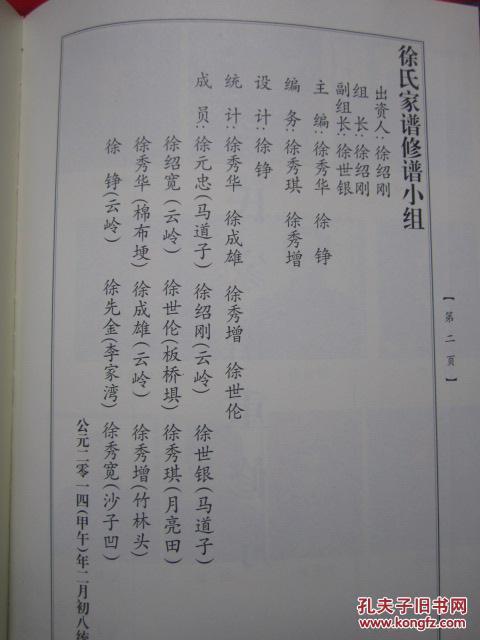 徐氏家谱修谱小组
出资人:徐绍刚
组长:徐绍刚
副组长:徐世银
主编:徐秀华 徐铮
编务:徐秀琪 徐秀增
设计:徐铮
统计:徐秀华 徐成雄 徐秀增 徐世伦
成员:徐元忠(马道子) 徐绍刚(云岭) 徐世银(马道子)
徐绍宽(云岭) 徐世伦(板桥埧) 徐秀琪(月亮田)
徐秀华(棉布埂) 徐成雄(云岭) 徐秀增(竹林头)
徐铮(云岭) 徐先金(李家湾) 徐秀宽(沙子凹)
公元二零一四(甲午)年二月初八
【第二页】
孔夫子旧书网